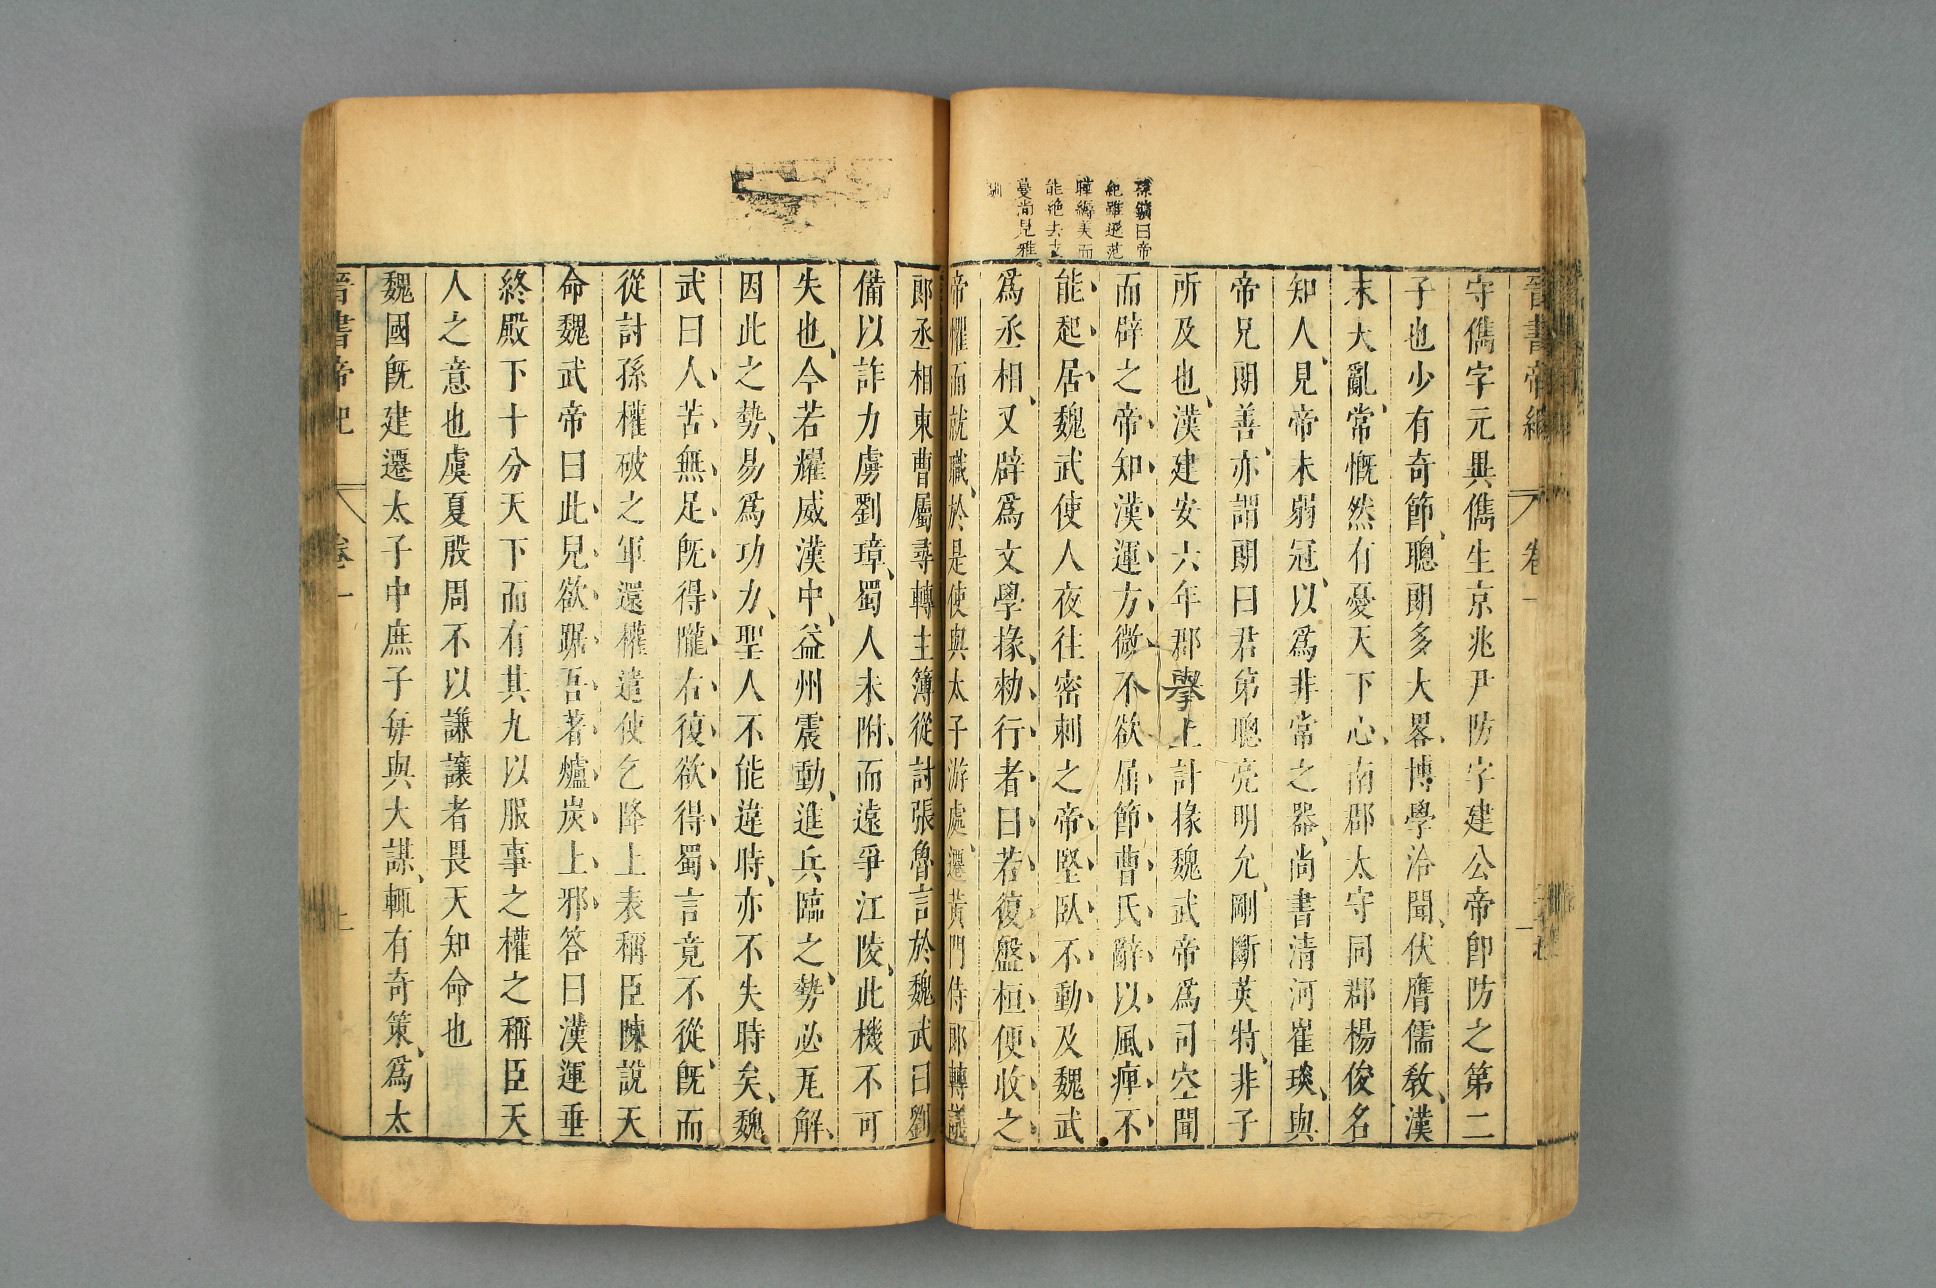 晉書帝紀 卷一 一
孫鑛曰帝
紀雖遜范
曄縟美而
能絶去支
蔓尚見雅
馴
守儁字元異儁生京兆尹防字建公帝卽防之第二
子也少有奇節聰朗多大畧博學洽聞伏膺儒敎漢
末大亂常慨然有憂天下心南郡太守同郡楊俊名
知人見帝未弱冠以爲非常之器尚書清河崔琰與
帝兄朗善亦謂朗曰君第聰亮明允剛斷英特非子
所及也漢建安六年郡擧上計掾魏武帝爲司空聞
而辟之帝知漢運方微不欲屈節曹氏辭以風痺不
能起居魏武使人夜往密刺之帝堅臥不動及魏武
爲丞相又辟爲文學掾勑行者曰若復盤桓便收之
帝懼而就職於是使與太子游處遷黃門侍郎轉議
郎丞相東曹屬尋轉主簿從討張魯言於魏武曰劉
備以詐力虜劉璋蜀人未附而遠爭江陵此機不可
失也今若耀威漢中益州震動進兵臨之勢必瓦解
因此之勢易爲功力聖人不能違時亦不失時矣魏
武曰人苦無足旣得隴右復欲得蜀言竟不從旣而
從討孫權破之軍還權遣使乞降上表稱臣陳說天
命魏武帝曰此兒欲踞吾著爐炭上邪答曰漢運垂
終殿下十分天下而有其九以服事之權之稱臣天
人之意也虞夏殷周不以謙讓者畏天知命也
魏國旣建遷太子中庶子每與大謀輒有奇策爲太
晉書帝紀 卷一 上